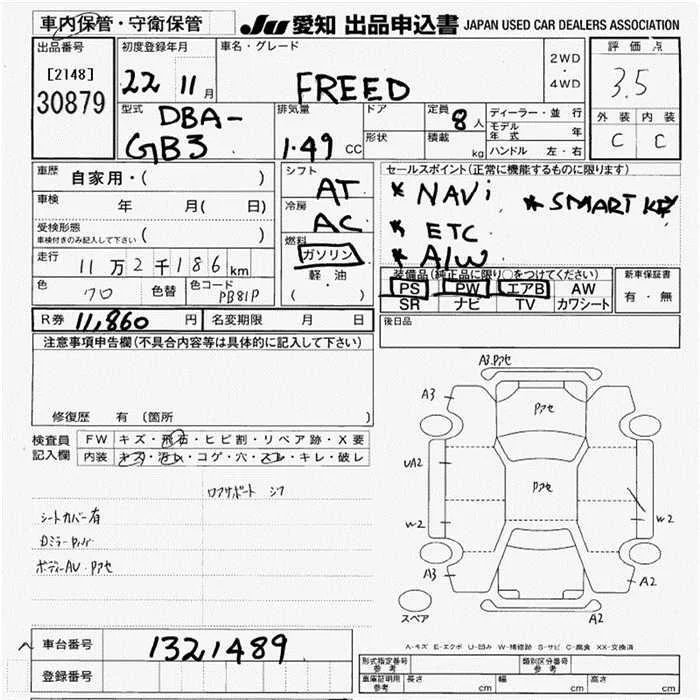 車内保管・守衛保管 JU 愛知 出品申込書 JAPAN USED CAR DEALERS ASSOCIATION
出品番号 初度登録年月 車名・グレード 2WD ・ 4WD 評価点
[2148] 30879 22 11月 FREED 3.5
型式 DBA-GB3 排気量 1.49 CC ドア 定員 8人 ディーラー・並行 外装 内装
形状 積載 kg モデル年式 年 C C
ハンドル 左・右
車歴 自家用・( ) シフト AT セールスポイント(正常に機能するものに限ります)
車検 年 月( 日) 冷房 AC * NAVi * SMART KEY
受検形態 車検付きのみ記入して下さい ( ) 燃料 * ETC
走行 11万2千186km ガソリン * A/W
軽油 装備品(純正品に限り○をつけてください) 新車保証書
色 クロ 色替 色コード PB81P ( ) PS PW エアB AW 有・無
SR ナビ TV カワシート
R券 11,860円 名変期限 月 日 後日品
注意事項申告欄(不具合内容等は具体的に記入して下さい)
修復歴 有 (箇所 )
検査員記入欄 FW キズ・飛石・ヒビ割・リペア跡・X要
内装 キズ・汚レ・コゲ・穴・スレ・キレ・破レ
シートカバー有
ボディーAU・Pアセ
A3.Pアセ
A3 Pアセ
UA2 Pアセ
W2 W2
A3 A2
スペア A2
A-キズ E-エクボ U-凹み W-補修跡 S-サビ C-腐食 XX-交換済
車台番号 1321489
登録番号
形式指定番号 参考 類別区分番号 参考
車庫証明用 参考 長さ cm 幅 cm 高さ cm